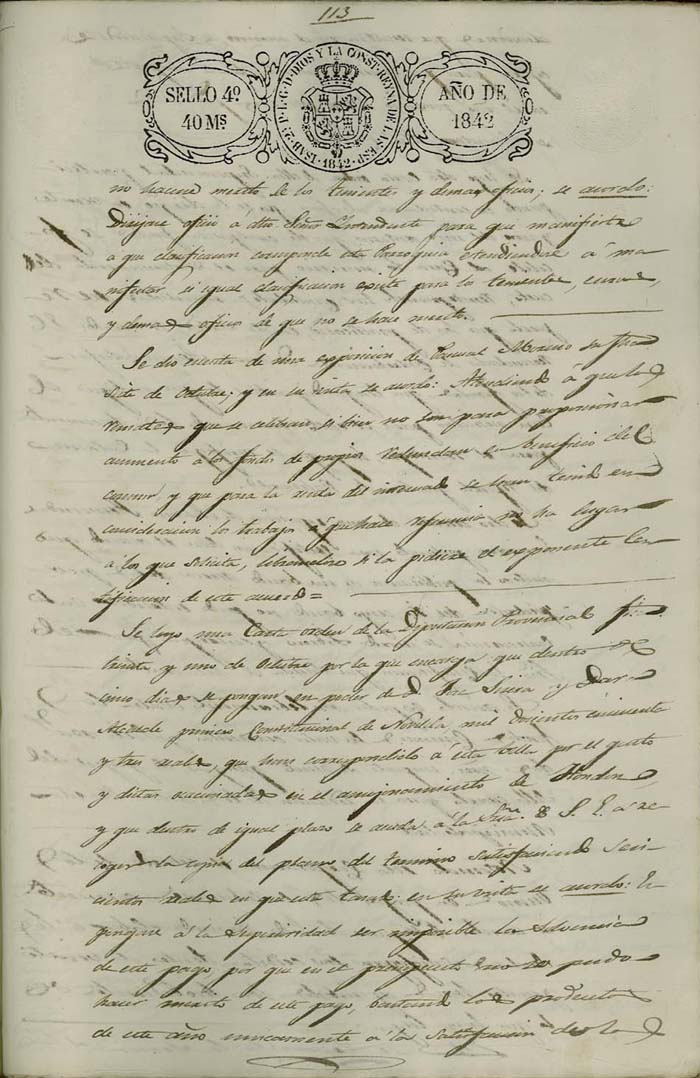 113
SELLO 4º
40 Ms
ISAB. 2ª P. L. G. D. DIOS Y LA CONST. REYNA DE LAS ESP.
1842
AÑO DE
1842
no hacerse merito de los tenientes y demas oficios; se acordo:
Dirijase oficio á dho Señor Intendente para que manifieste
a que clasificacion corresponde esta Parroquia estendiendose á ma
nifestar si igual clasificacion existe para los tenientes, curas,
y demas oficios de que no se hace merito.
Se dio cuenta de una esposicion de Pascual Moreno su fha
siete de Octubre; y en su vista se acordo: Atendiendo á que los
remates que se celebran, si bien no son para proporcionar
aumento a los fondos de propios redundan en beneficio del
comun y que para la renta del se han tenido en
consideracion los trabajos á que hace referencia no ha lugar
á los que solicita, librandose si la pidiere el esponente Cer
tificacion de este acuerdo=
Se leyo una Carta orden de la Diputacion Provincial fha
treinta y uno de Octubre por la que encarga que dentro de
cinco dias se pongan en poder de D. José Sirera y Dara
Alcalde primero Constitucional de Novelda, mil docientos cincuenta
y tres reales, que han correspondido á esta villa por el gasto
y dietas ocacionadas en el amojonamiento de Hondon,
y que dentro de igual plazo se acuda á la Sria. de S. E. á re
coger la copia del plano del termino satisfaciendo seis
cientos reales en que esta tasado; en su vista se acordo: Es
pongase á la Superioridad ser imposible la solvencia
de este pago, por que en el presupuesto no se pudo
hacer merito de este pago, bastando los productos
de este año unicamente á la satisfaccion de los